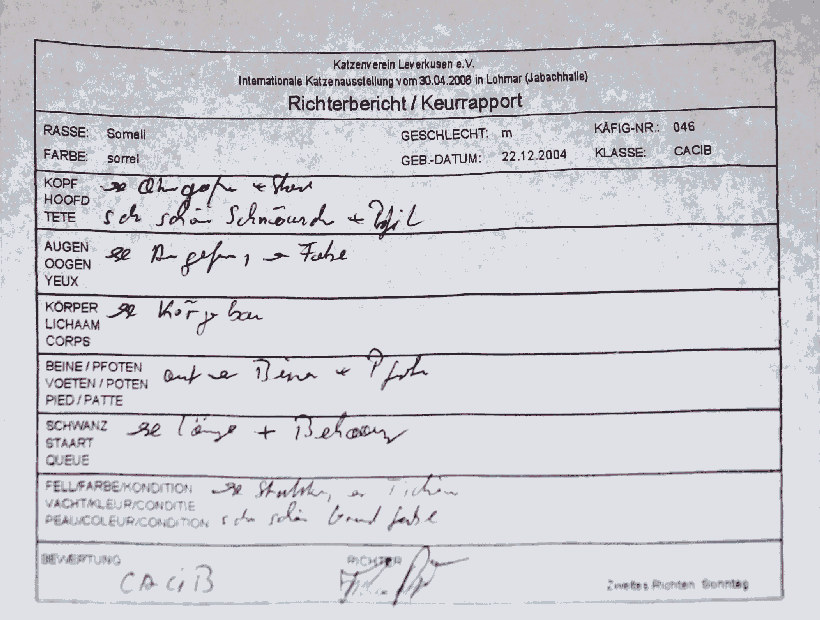 Katzenverein Leverkusen e.V.
Internationale Katzenausstellung vom 30.04.2006 in Lohmar (Jabachhalle)
Richterbericht / Keurrapport
RASSE: Somali GESCHLECHT: m KÄFIG-NR.: 046
FARBE: sorrel GEB.-DATUM: 22.12.2004 KLASSE: CACIB
KOPF
HOOFD
TETE schön + Profil
AUGEN
OOGEN Farbe
YEUX
KÖRPER
LICHAAM
CORPS
BEINE / PFOTEN
VOETEN / POTEN Beine + Pfoten
PIED / PATTE
SCHWANZ Länge + Behaarung
STAART
QUEUE
FELL/FARBE/KONDITION
VACHT/KLEUR/CONDITIE
PEAU/COLEUR/CONDITION schön
BEWERTUNG RICHTER
CACIB Zweites Richten Sonntag